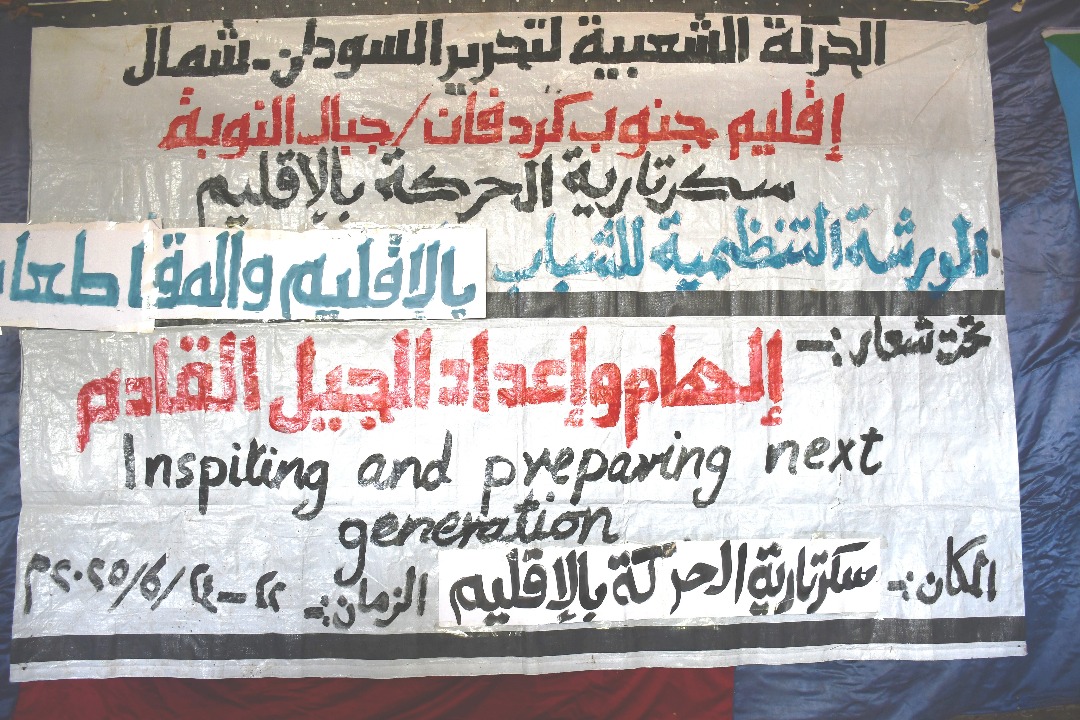 الحركة الشعبية لتحرير السودان-شمال
إقليم جنوب كردفان/جبال النوبة
سكرتارية الحركة بالإقليم
الورشة التنظمية للشباب بالإقليم والمقاطعات
تحت شعار:-
إلهام وإعداد الجيل القادم
Inspiting and preparing next
generation
المكان:- سكرتارية الحركة بالإقليم الزمان:- ٢٢-٢٤/٦/٢٠٢٥م